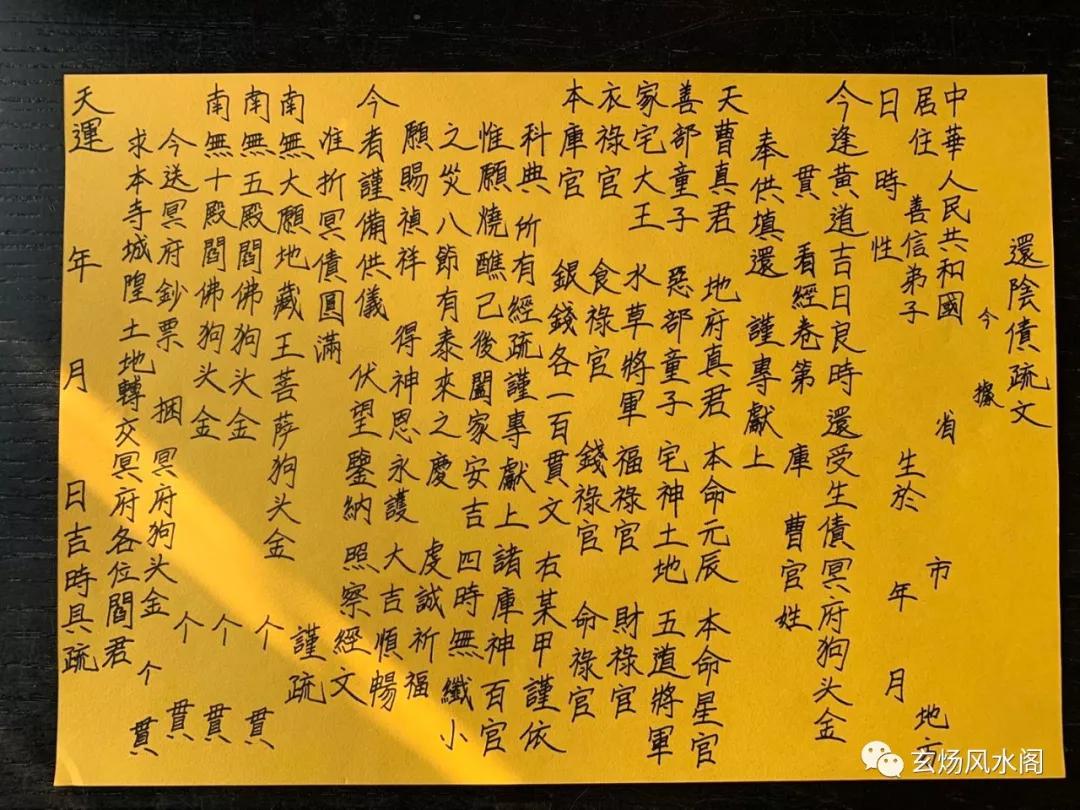 還陰債疏文
今據
中華人民共和國 省 市 地方
居住 善信弟子 生於 年 月
日 時 性
今逢黃道吉日良時還受生債冥府狗头金
貫 看經卷第 庫 曹官姓
奉供填還 謹專獻上
天曹真君 地府真君 本命元辰 本命星官
善部童子 惡部童子 宅神土地 五道將軍
家宅大王 水草將軍 福祿官 財祿官
衣祿官 食祿官 錢祿官 命祿官
本庫官 銀錢各一百貫文 右某甲謹依
科典所有經疏謹專獻上諸庫神百官
惟願燒醮已後闔家安吉四時無纖小
之災八節有泰來之慶 虔誠祈福
願賜禎祥 得神恩永護 大吉順暢
今者謹備供儀 伏望鑒納 照察經文
准折冥債圓滿 謹疏
南無大願地藏王菩萨狗头金 个 貫
南無五殿閻佛狗头金 个 貫
南無十殿閻佛狗头金 个 貫
今送冥府鈔票 捆冥府狗头金 个 貫
求本寺城隍土地轉交冥府各位閻君
天運 年 月 日吉時具疏
玄炀风水阁